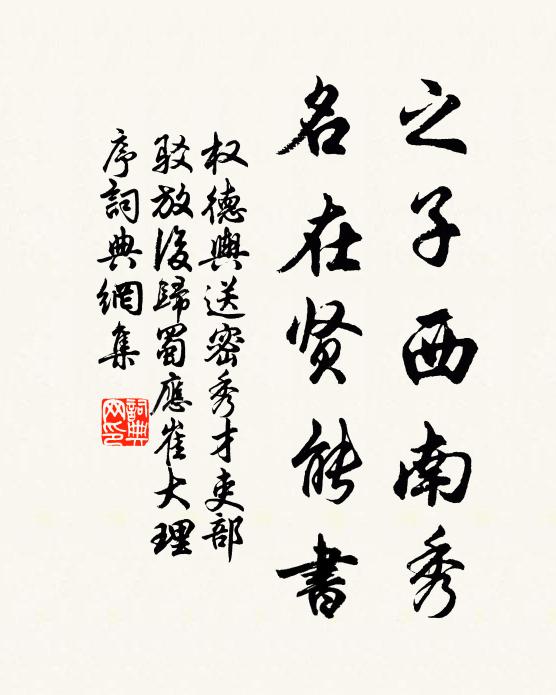 之子西南秀
名在贤能書
权德輿送密秀才吏部
驳放後歸蜀應崔大理
序詞典網集
詞典
网印